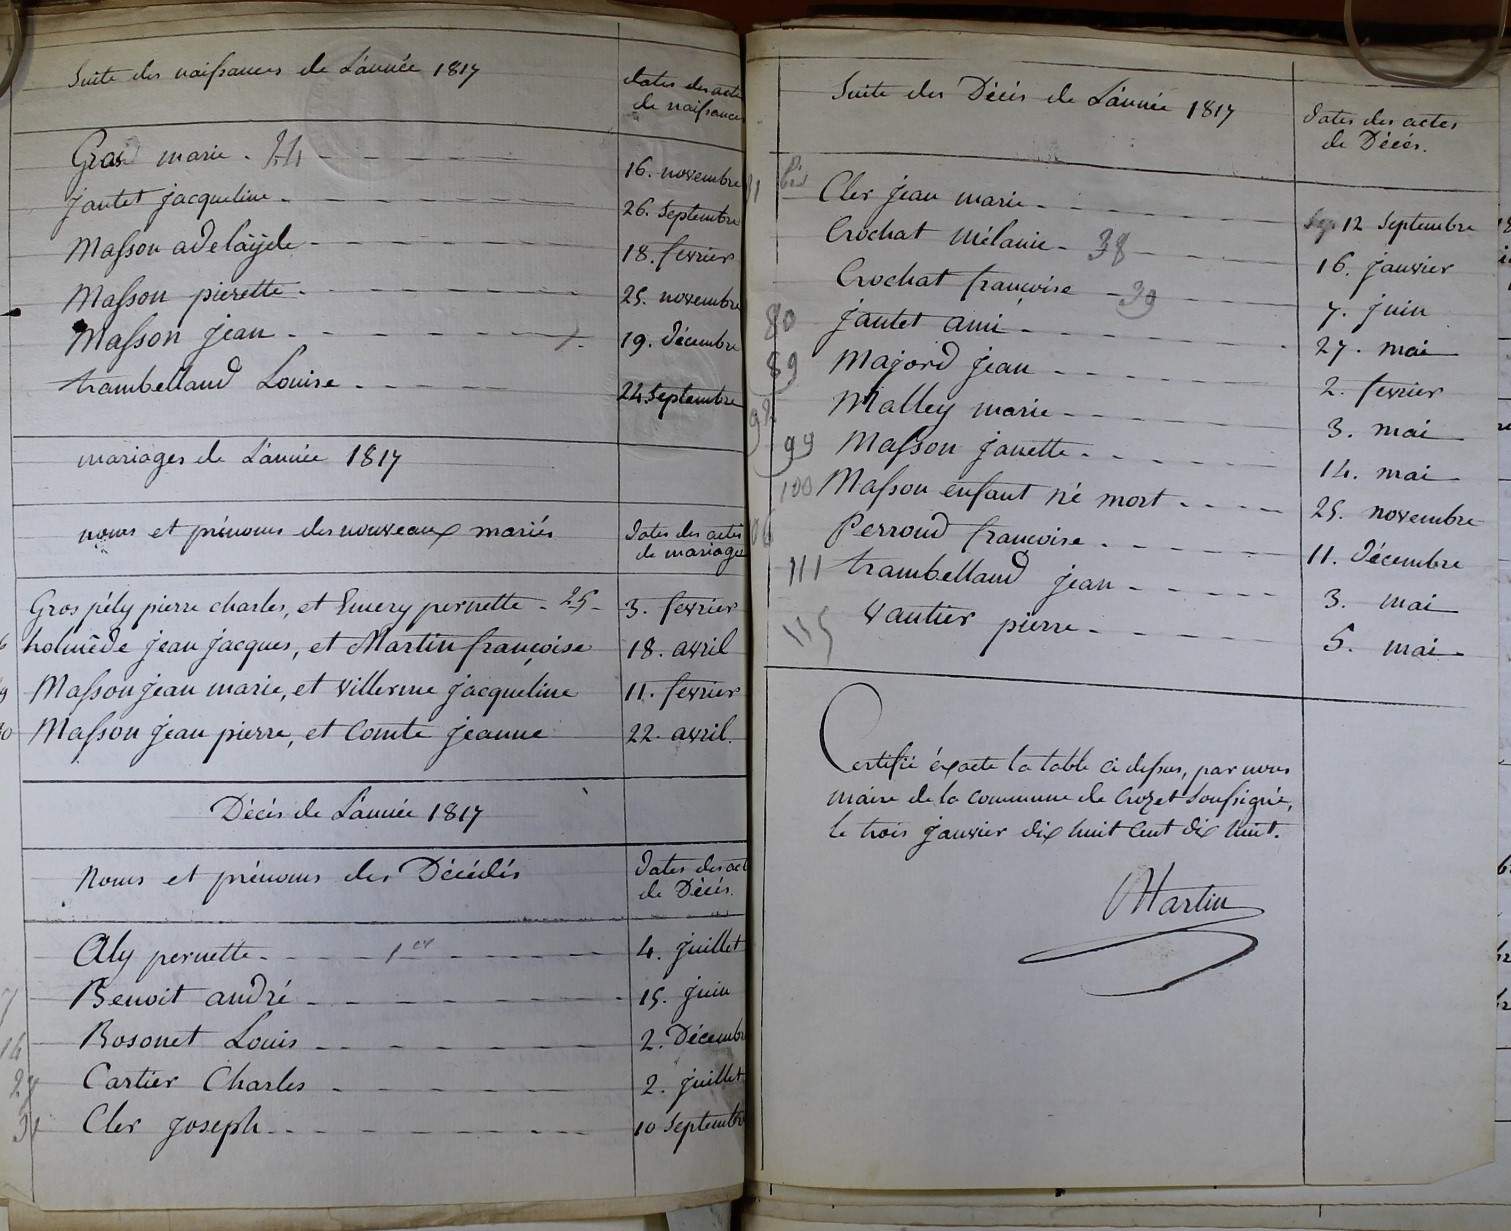 Suite des naissances de L'année 1817
dates des actes
de naissances
Gros marie - 24
16. novembre
jantet jacqueline
26. Septembre
Masson adelaÿde
18. fevrier
Masson pierette
25. novembre
Masson jean
19. Décembre
trambelland Louise
24 Septembre
mariages de L'année 1817
noms et prénoms des nouveaux mariés
Dates des actes
de mariage
Gros pély pierre charles, et Emery pernette - 25 -
3. fevrier
holmède jean jacques, et Martin françoise
18. avril
Masson jean marie, et villerme jacqueline
11. fevrier
Masson jean pierre, et Comte jeanne
22. avril.
Décès de L'année 1817
Noms et prénoms des Décédés
Dates des act
de Décès.
Aly pernette - 1er
4. juillet
7 Benoit andré
15. juin
14 Bosonet Louis
2. Décembre
27 Cartier Charles
2. juillet
31 Cler joseph
10 Septembre
Suite des Décès de L'année 1817
dates des actes
de Décès.
31 bis Cler jean marie
12 Septembre
Crochat Mélanie - 38
16. janvier
Crochat françoise - 39
7. juin
80 jantet ami
27. mai
89 Majord jean
2. fevrier
92 Malley marie
3. mai
99 Masson janette
14. mai
100 Masson enfant né mort
25. novembre
Perroud françoise
11. Décembre
111 trambelland jean
3. mai
115 Vautier pierre
5. mai
Certifié éxacte la table ci dessus, par nous
maire de la commune de Crozet Soussigné,
le trois janvier dix huit Cent dix huit.
Martin